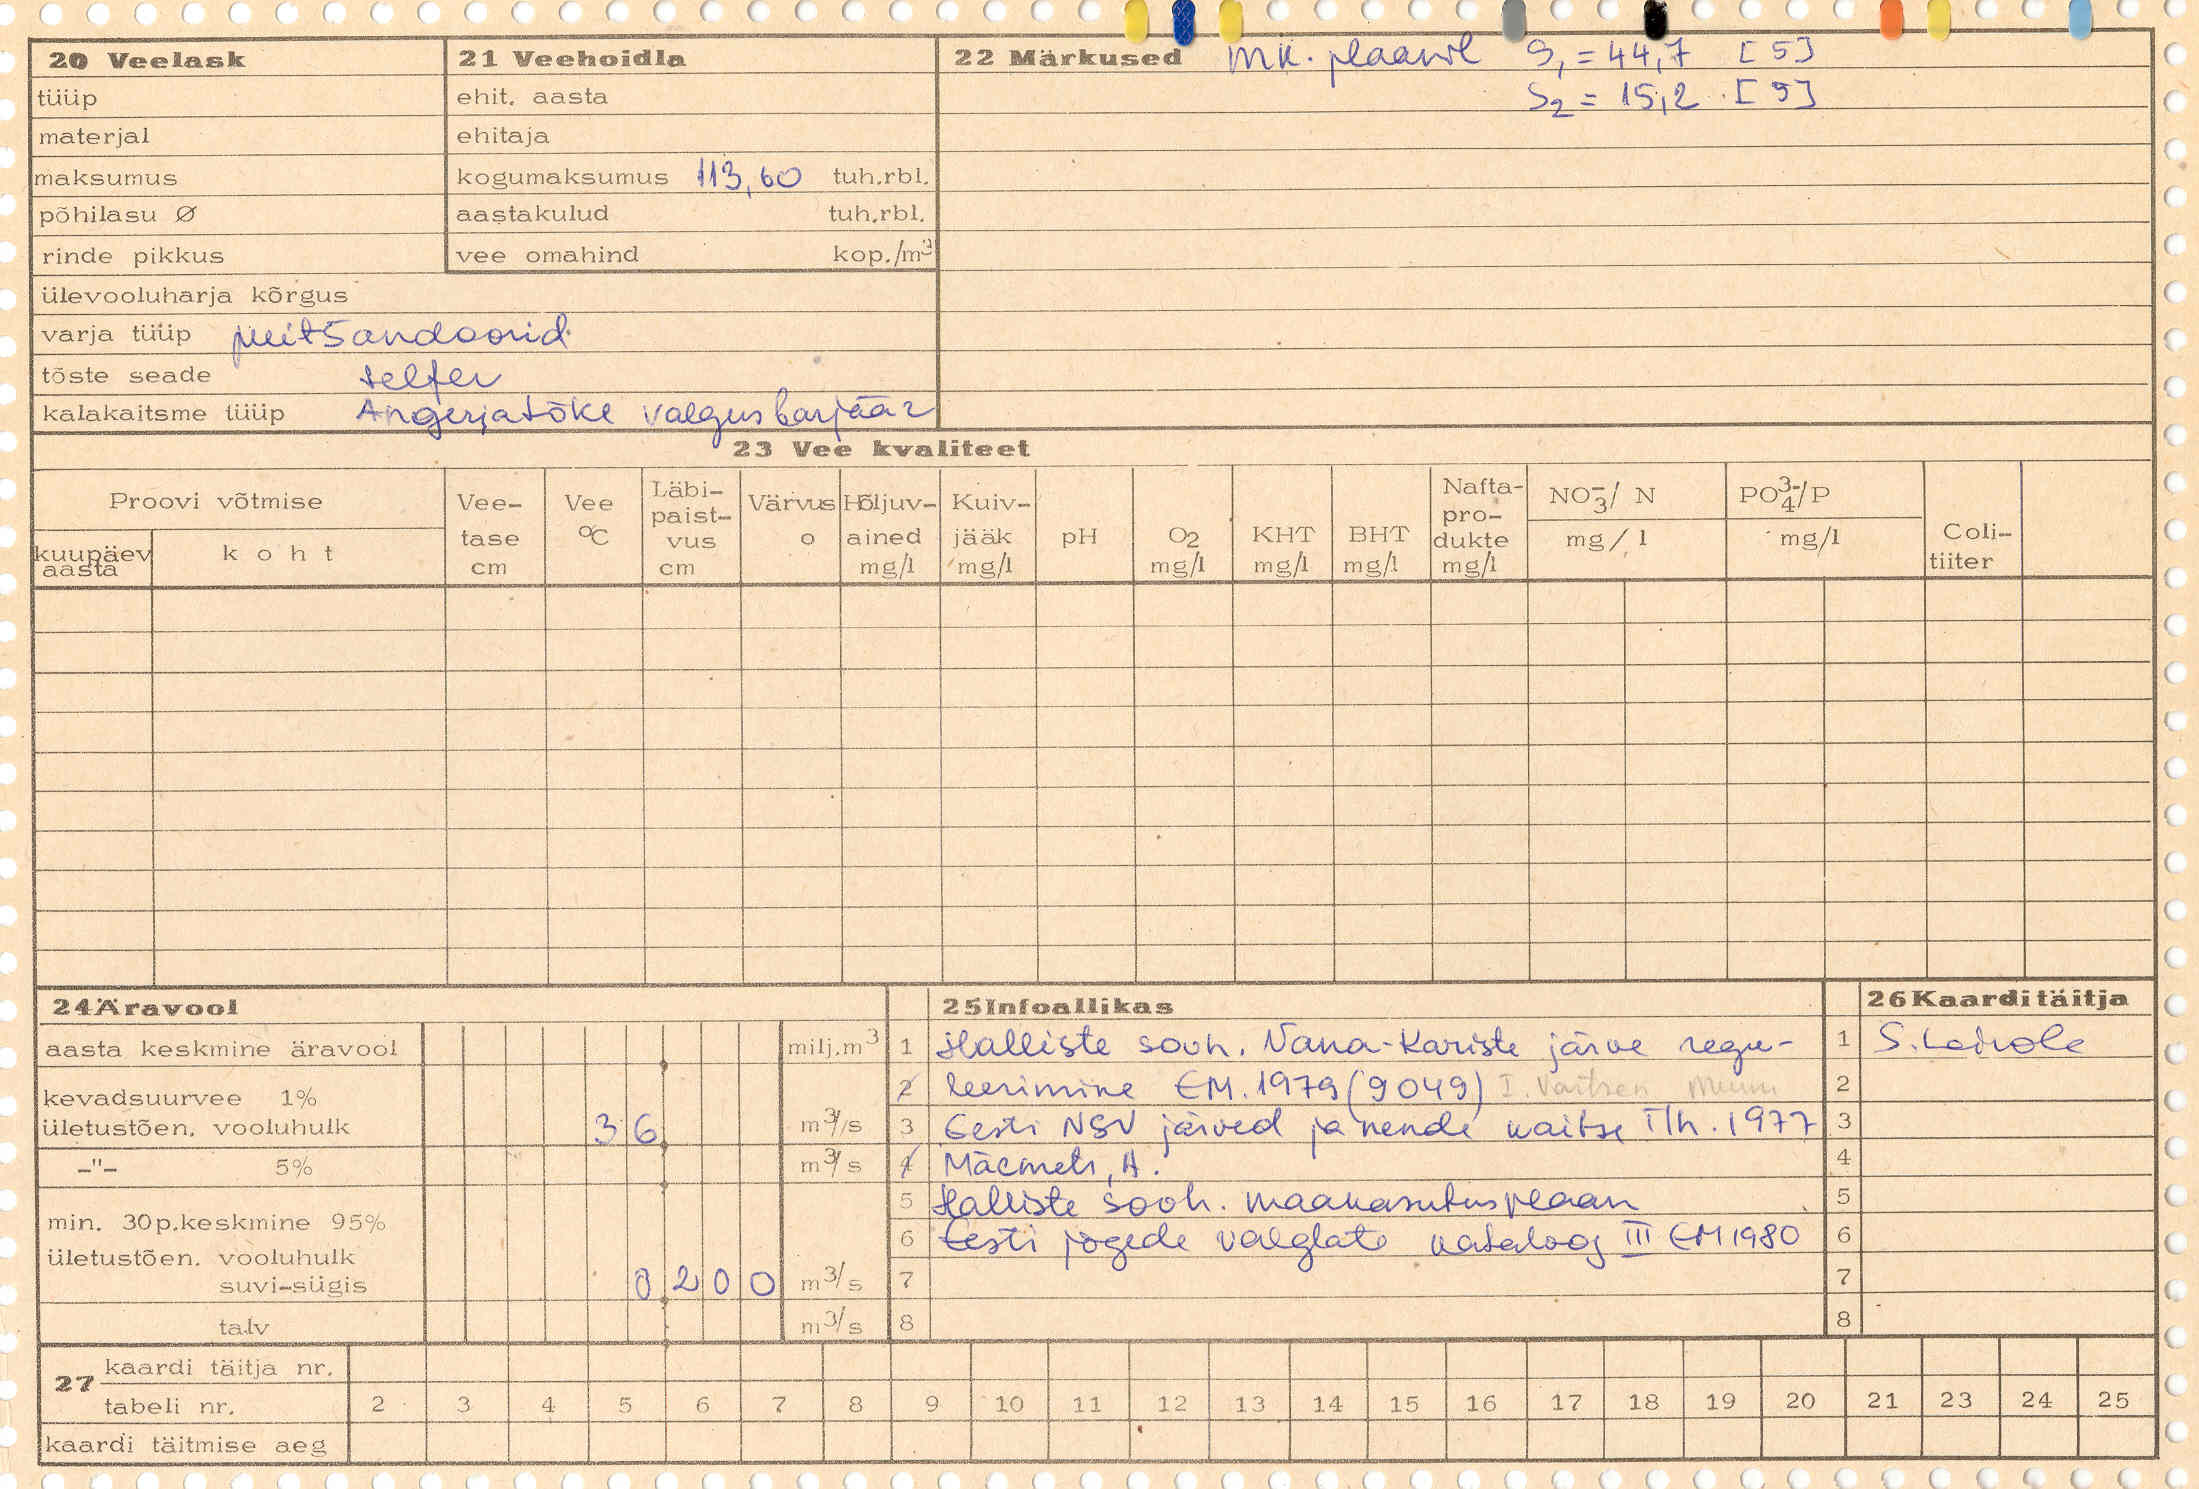 20 Veelask
tüüp
materjal
maksumus
põhilasu Ø
rinde pikkus
ülevooluharja kõrgus
varja tüüp puitšandoorid
tõste seade telfer
kalakaitsme tüüp Angerjatõke valgusbarjäär
21 Veehoidla
ehit. aasta
ehitaja
kogumaksumus 113,60 tuh.rbl.
aastakulud tuh.rbl.
vee omahind kop./m³
22 Märkused MK. plaanil S₁ = 44,7 [5]
S₂ = 15,2 [5]
23 Vee kvaliteet
Proovi võtmise
kuupäev aasta
koht
Vee-tase cm
Vee °C
Läbi-paist-vus cm
Värvus o
Hõljuv-ained mg/l
Kuiv-jääk mg/l
pH
O2 mg/l
KHT mg/l
BHT mg/l
Nafta-pro-dukte mg/l
NO₃⁻/ N mg/l
PO₄³⁻/P mg/l
Coli-tiiter
24 Äravool
aasta keskmine äravool milj.m³
kevadsuurvee 1%
ületustõen. vooluhulk 36 m³/s
-"- 5% m³/s
min. 30p.keskmine 95%
ületustõen. vooluhulk
suvi-sügis 0200 m³/s
talv m³/s
25 Infoallikas
1 Halliste sooh. Vana-Kariste järve regu-
2 leerimine EM.1979 (9049) I. Vaitsen
3 Eesti NSV järved ja nende kaitse Tlh. 1977
4 Mäemets, A.
5 Halliste sooh. maakasutusplaan
6 Eesti jõgede valglate kataloog III EM 1980
7
8
26 Kaarditäitja
1 S.
2
3
4
5
6
7
8
27 kaardi täitja nr.
tabeli nr. 2 3 4 5 6 7 8 9 10 11 12 13 14 15 16 17 18 19 20 21 23 24 25
kaardi täitmise aeg